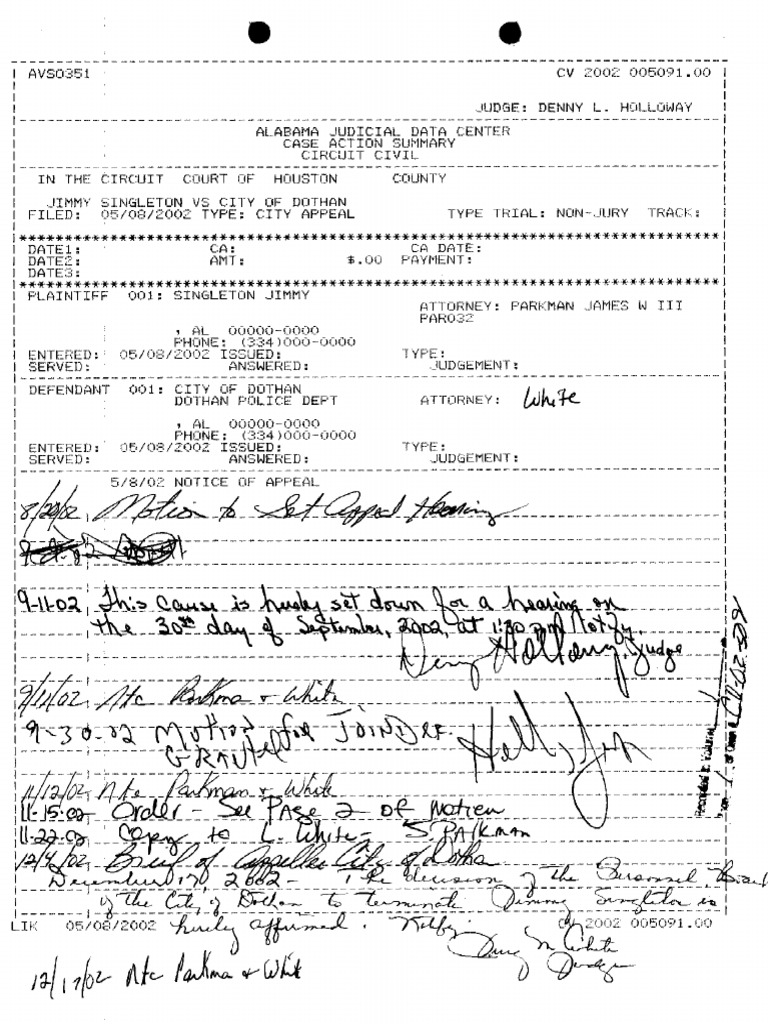 AVSO351 CV 2002 005091.00
JUDGE: DENNY L. HOLLOWAY
ALABAMA JUDICIAL DATA CENTER
CASE ACTION SUMMARY
CIRCUIT CIVIL
IN THE CIRCUIT COURT OF HOUSTON COUNTY
JIMMY SINGLETON VS CITY OF DOTHAN
FILED: 05/08/2002 TYPE: CITY APPEAL TYPE TRIAL: NON-JURY TRACK:
DATE1: CA: CA DATE:
DATE2: AMT: $.00 PAYMENT:
DATE3:
PLAINTIFF 001: SINGLETON JIMMY
ATTORNEY: PARKMAN JAMES W III
PAR032
, AL 00000-0000
PHONE: (334)000-0000
ENTERED: 05/08/2002 ISSUED: TYPE:
SERVED: ANSWERED: JUDGEMENT:
DEFENDANT 001: CITY OF DOTHAN
DOTHAN POLICE DEPT ATTORNEY: White
, AL 00000-0000
PHONE: (334)000-0000
ENTERED: 05/08/2002 ISSUED: TYPE:
SERVED: ANSWERED: JUDGEMENT:
5/8/02 NOTICE OF APPEAL
8/20/02, Motion to Set Appeal Hearing
9-11-02 This cause is hereby set down for a hearing on
the 30th day of September, 2002, at 1:30 pm Notify.
Denny Holloway, Judge
9/11/02 Ntc Parkman + White
9-30-02 Motion for JOINDER.
GRANTED
11/12/02 Ntc Parkman + White
11-15-02 Order - See PAGE 2 OF Motion
11-22-02 Copy to L. White - J PARKMAN
12/4/02 Brief of Appellee City of Dothan
December 17, 2002 - The decision of the Personnel Board
of the City of Dothan to terminate Jimmy Singleton is
LIK 05/08/2002 hereby affirmed. Notify. CV 2002 005091.00
Judge
12/17/02 Ntc Parkman + White